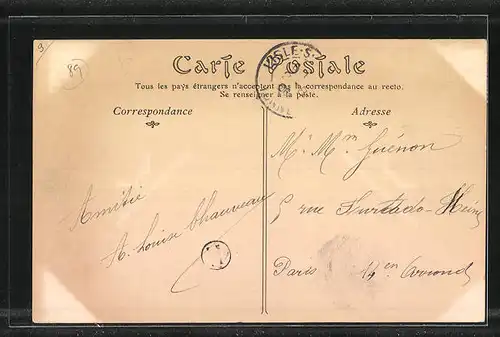 9
89
Carte Postale
L'ISLE-S-
Tous les pays étrangers n'acceptent pas la correspondance au recto.
Se renseigner à la poste.
Correspondance
Adresse
Mr Mm Guénon
Amitié
5 rue Hurtado-Heine
A. Louise Chauveau
Paris 14en Arrond